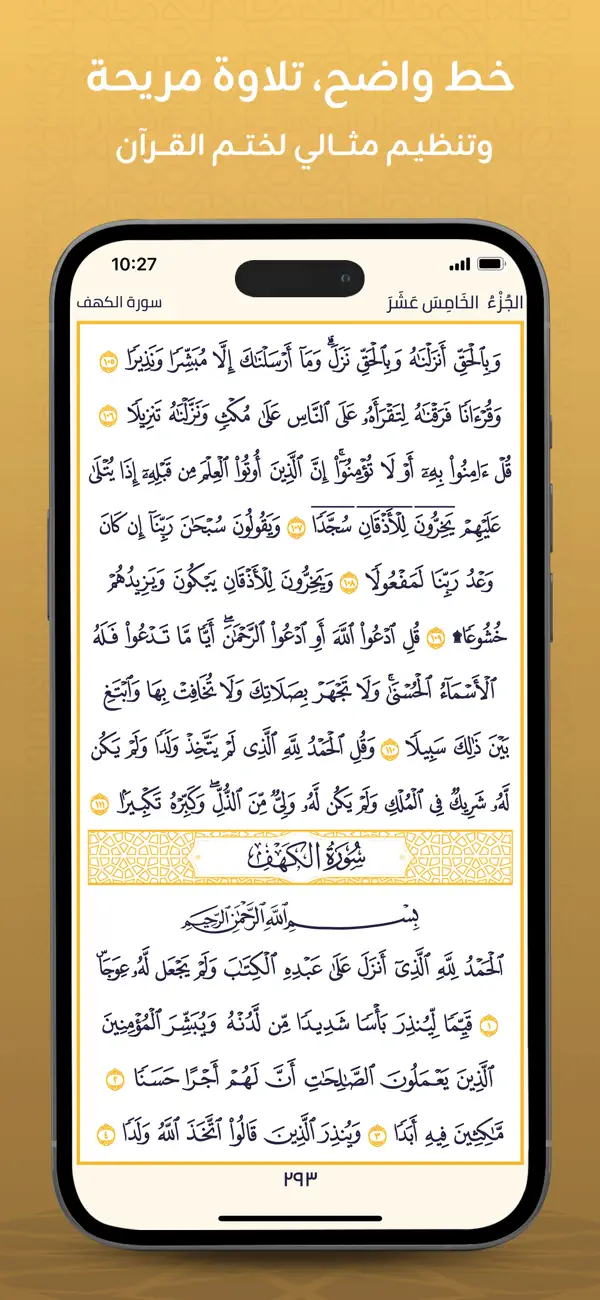 خط واضح، تلاوة مريحة
وتنظيم مثـالي لختـم القـرآن
10:27
الجُزْءُ الخَامِسَ عَشَرَ
سورة الكهف
وَبِٱلۡحَقِّ أَنزَلۡنَٰهُ وَبِٱلۡحَقِّ نَزَلَۗ وَمَآ أَرۡسَلۡنَٰكَ إِلَّا مُبَشِّرٗا وَنَذِيرٗا ١٠٥
وَقُرۡءَانٗا فَرَقۡنَٰهُ لِتَقۡرَأَهُۥ عَلَى ٱلنَّاسِ عَلَىٰ مُكۡثٖ وَنَزَّلۡنَٰهُ تَنزِيلٗا ١٠٦
قُلۡ ءَامِنُواْ بِهِۦٓ أَوۡ لَا تُؤۡمِنُوٓاْۚ إِنَّ ٱلَّذِينَ أُوتُواْ ٱلۡعِلۡمَ مِن قَبۡلِهِۦٓ إِذَا يُتۡلَىٰ
عَلَيۡهِمۡ يَخِرُّونَۤ لِلۡأَذۡقَانِۤ سُجَّدٗاۤ ١٠٧ وَيَقُولُونَ سُبۡحَٰنَ رَبِّنَآ إِن كَانَ
وَعۡدُ رَبِّنَا لَمَفۡعُولٗا ١٠٨ وَيَخِرُّونَ لِلۡأَذۡقَانِ يَبۡكُونَ وَيَزِيدُهُمۡ
خُشُوعٗا۩ ١٠٩ قُلِ ٱدۡعُواْ ٱللَّهَ أَوِ ٱدۡعُواْ ٱلرَّحۡمَٰنَۖ أَيّٗا مَّا تَدۡعُواْ فَلَهُ
ٱلۡأَسۡمَآءُ ٱلۡحُسۡنَىٰۚ وَلَا تَجۡهَرۡ بِصَلَاتِكَ وَلَا تُخَافِتۡ بِهَا وَٱبۡتَغِ
بَيۡنَ ذَٰلِكَ سَبِيلٗا ١١٠ وَقُلِ ٱلۡحَمۡدُ لِلَّهِ ٱلَّذِي لَمۡ يَتَّخِذۡ وَلَدٗا وَلَمۡ يَكُن
لَّهُۥ شَرِيكٞ فِي ٱلۡمُلۡكِ وَلَمۡ يَكُن لَّهُۥ وَلِيّٞ مِّنَ ٱلذُّلِّۖ وَكَبِّرۡهُ تَكۡبِيرَۢا ١١١
سُورَةُ الكَهۡفِ
بِسۡمِ ٱللَّهِ ٱلرَّحۡمَٰنِ ٱلرَّحِيمِ
ٱلۡحَمۡدُ لِلَّهِ ٱلَّذِيٓ أَنزَلَ عَلَىٰ عَبۡدِهِ ٱلۡكِتَٰبَ وَلَمۡ يَجۡعَل لَّهُۥ عِوَجَاۜ
١ قَيِّمٗا لِّيُنذِرَ بَأۡسٗا شَدِيدٗا مِّن لَّدُنۡهُ وَيُبَشِّرَ ٱلۡمُؤۡمِنِينَ
ٱلَّذِينَ يَعۡمَلُونَ ٱلصَّٰلِحَٰتِ أَنَّ لَهُمۡ أَجۡرًا حَسَنٗا ٢
مَّٰكِثِينَ فِيهِ أَبَدٗا ٣ وَيُنذِرَ ٱلَّذِينَ قَالُواْ ٱتَّخَذَ ٱللَّهُ وَلَدٗا ٤
٢٩٣